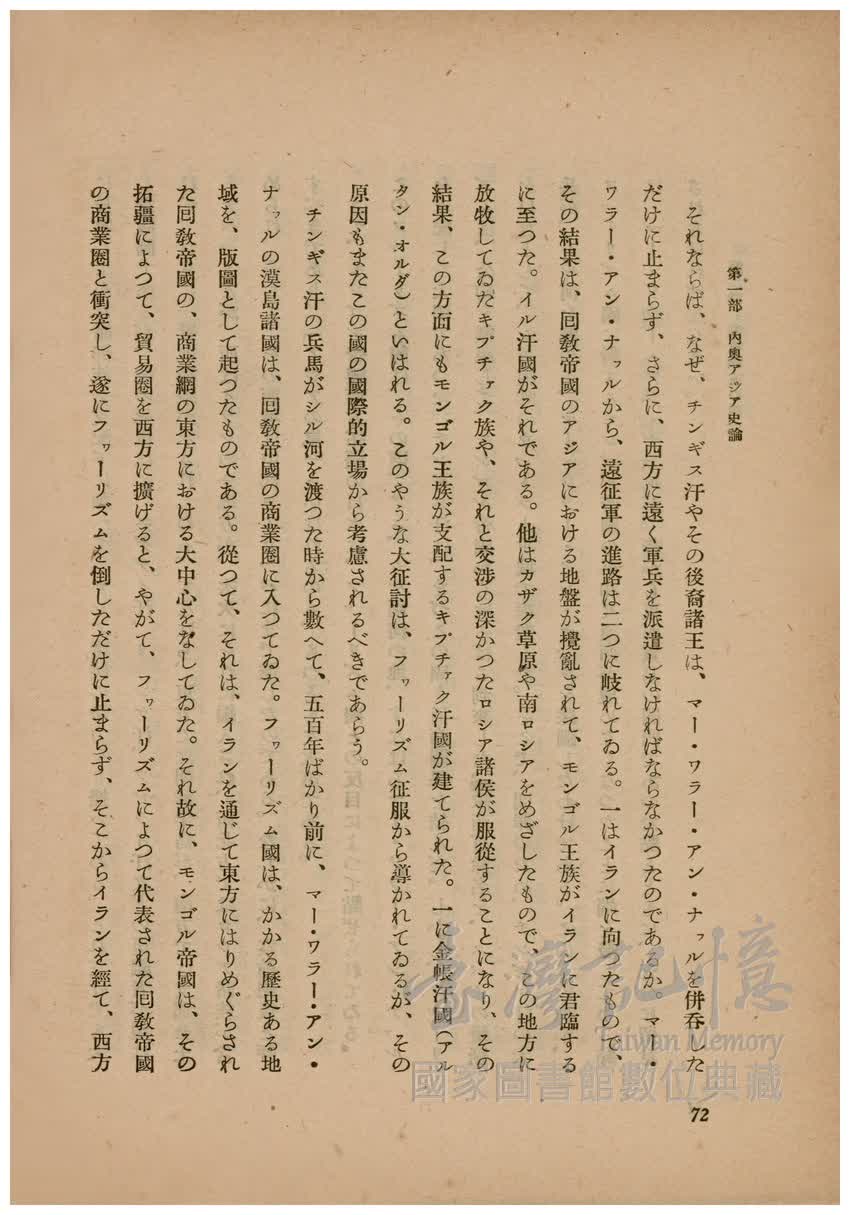 第一部　內奧アジア史論
それならば、なぜ、チンギス汗やその後裔諸王は、マー・ワラー・アン・ナァルを併呑した
だけに止まらず、さらに、西方に遠く軍兵を派遣しなければならなかつたのであるか。マー・
ワラー・アン・ナァルから、遠征軍の進路は二つに岐れてゐる。一はイランに向つたもので、
その結果は、囘敎帝國のアジアにおける地盤が攪亂されて、モンゴル王族がイランに君臨する
に至つた。イル汗國がそれである。他はカザク草原や南ロシアをめざしたもので、この地方に
放牧してゐたキプチァク族や、それと交渉の深かつたロシア諸侯が服從することになり、その
結果、この方面にもモンゴル王族が支配するキプチァク汗國が建てられた。一に金帳汗國（アル
タン・オルダ）といはれる。このやうな大征討は、フヮーリズム征服から導かれてゐるが、その
原因もまたこの國の國際的立場から考慮されるべきであらう。
チンギス汗の兵馬がシル河を渡つた時から數へて、五百年ばかり前に、マー・ワラー・アン・
ナァルの漠島諸國は、囘敎帝國の商業圈に入つてゐた。フヮーリズム國は、かかる歷史ある地
域を、版圖として起つたものである。從つて、それは、イランを通じて東方にはりめぐらされ
た囘敎帝國の、商業網の東方における大中心をなしてゐた。それ故に、モンゴル帝國は、その
拓疆によつて、貿易圈を西方に擴げると、やがて、フヮーリズムによつて代表された囘敎帝國
の商業圈と衝突し、遂にフヮーリズムを倒しただけに止まらず、そこからイランを經て、西方
72
臺灣記憶
Taiwan Memory
國家圖書館數位典藏